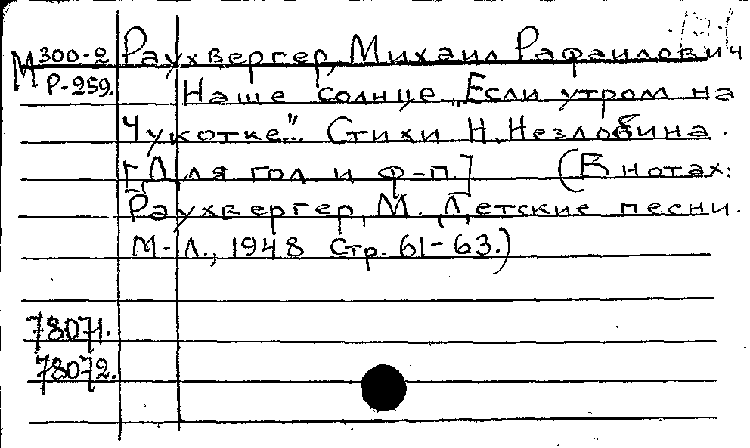 М 300-2 Раухвергер, Михаил Рафаилович
Р-259. Наше солнце „Если утром на
Чукотке". Стихи Н. Незлобина.
[Для гол. и ф-п.] (В нотах:
Раухвергер, М. Детские песни.
М-Л., 1948 Стр. 61-63.)
78071.
78072.